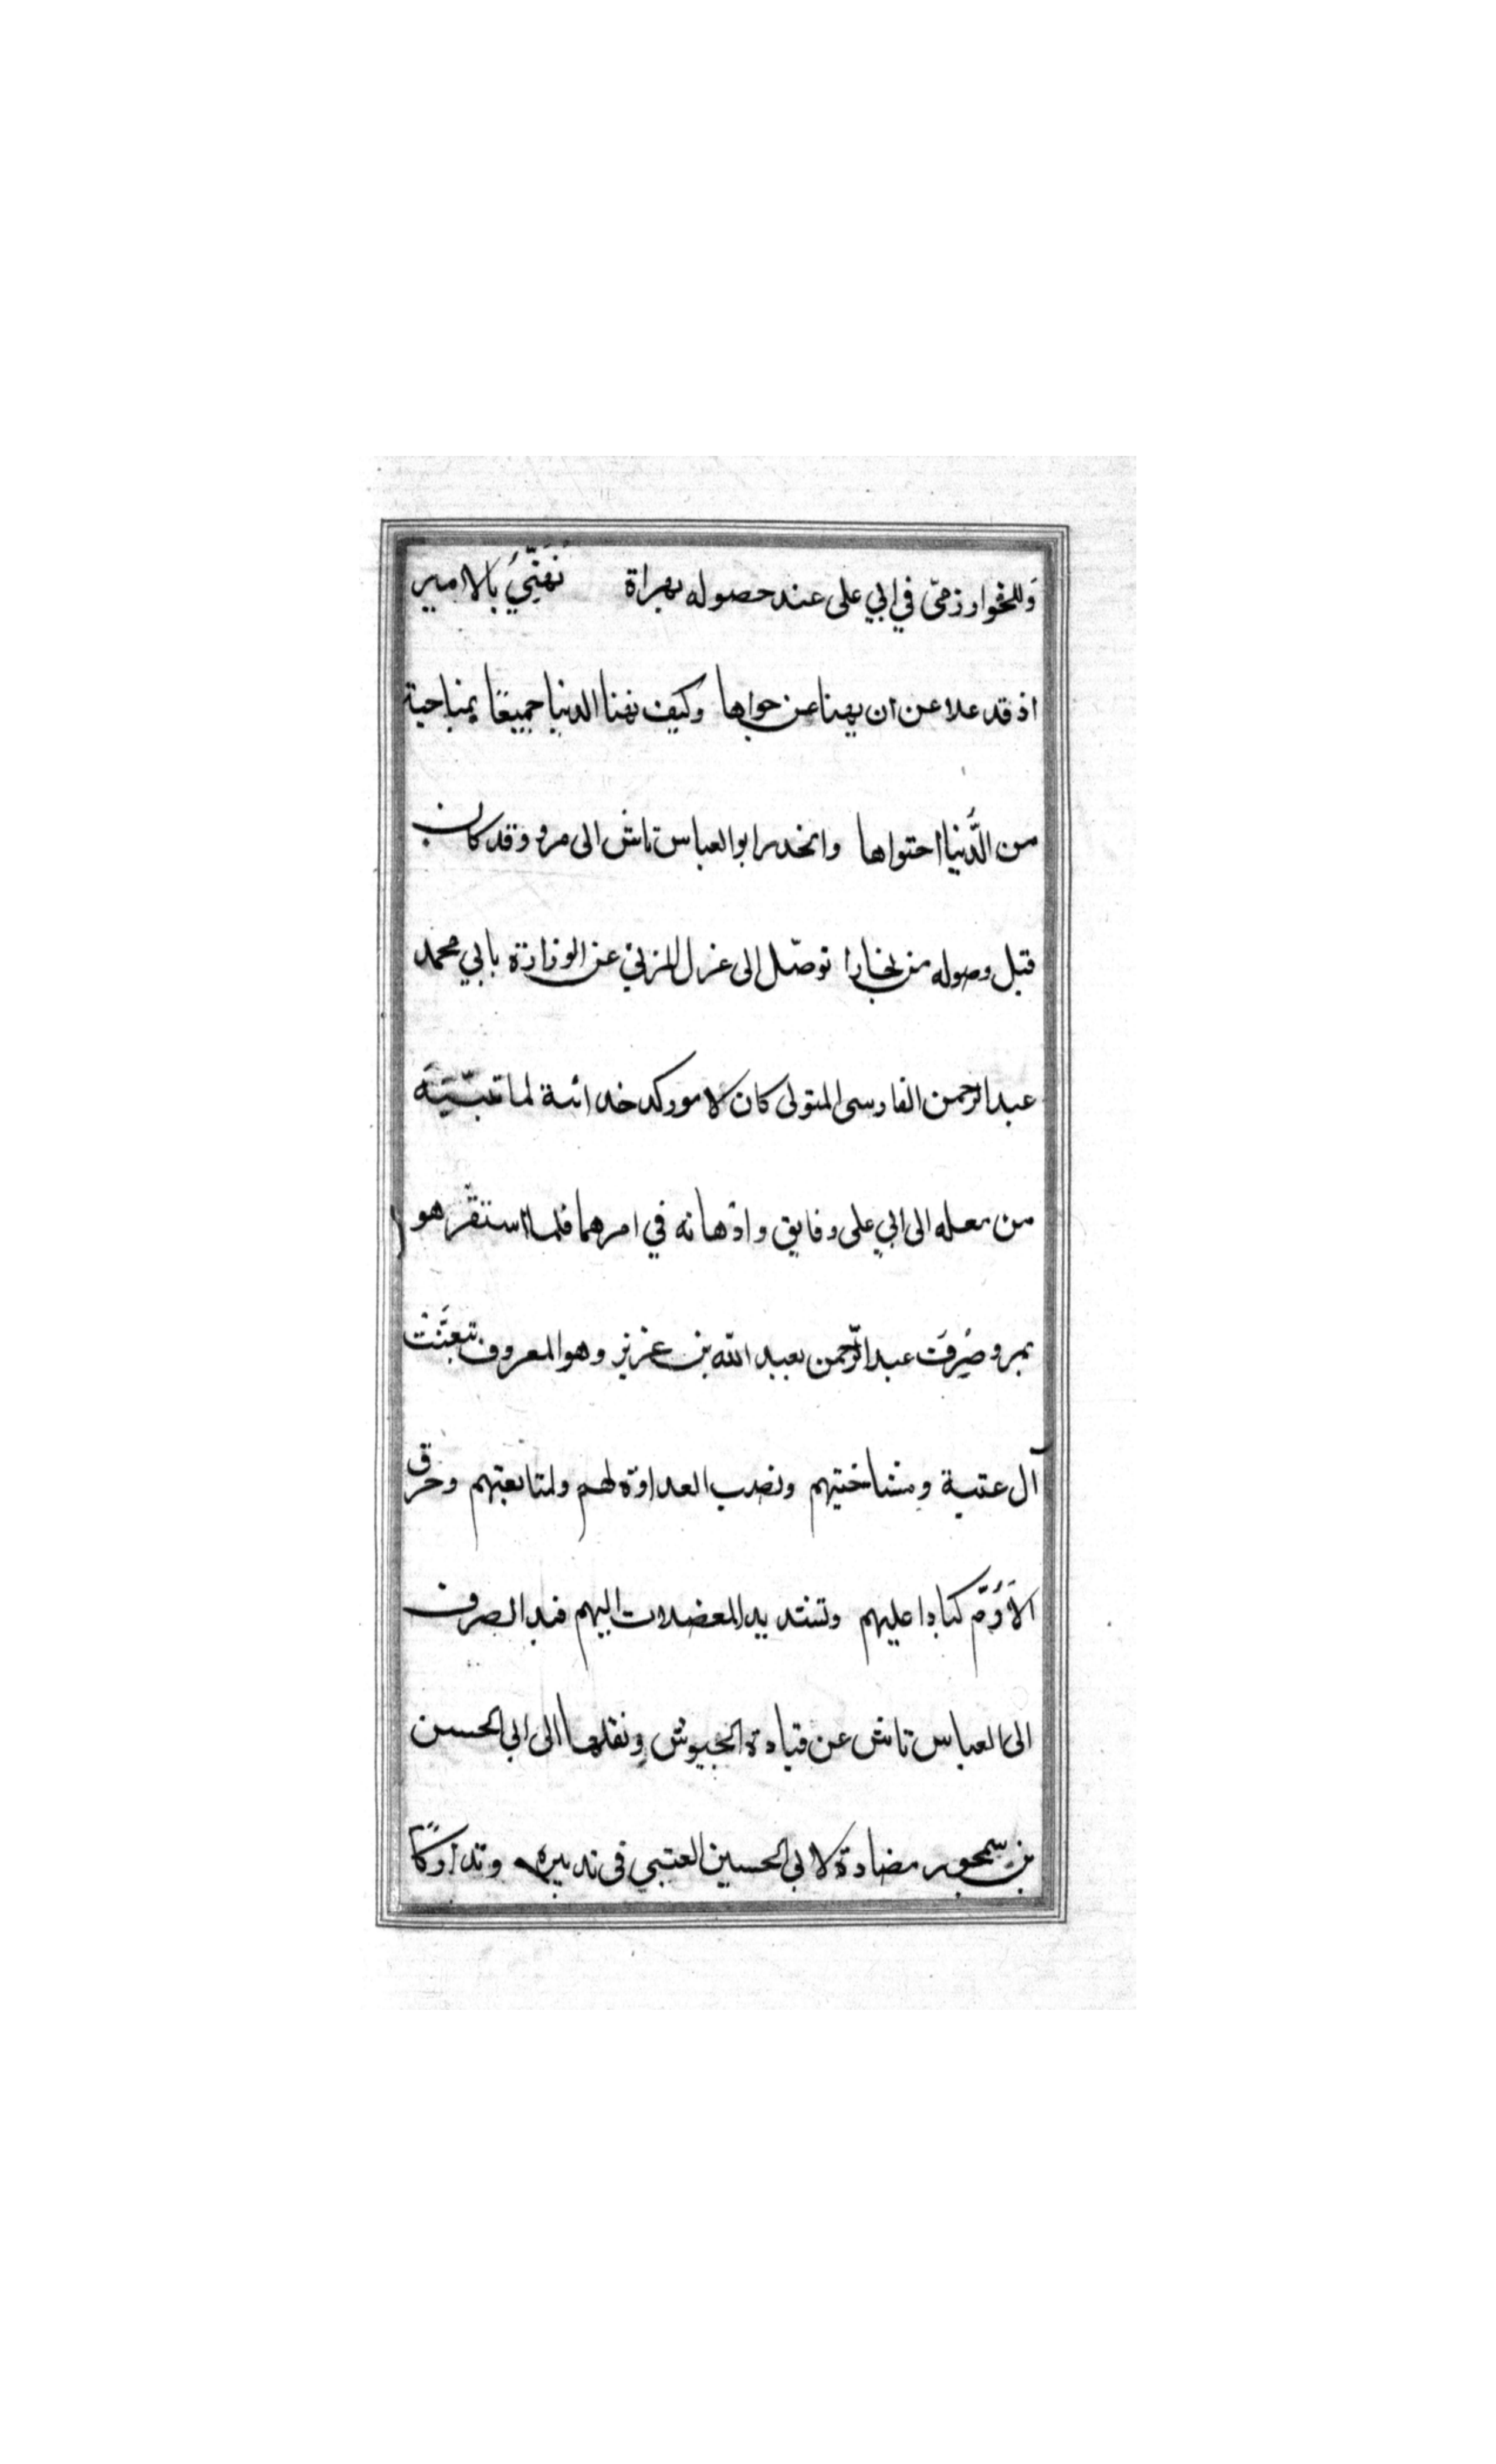 وللخوارزمى في ابي على عند حصوله بهراة نهنّي بالامير
اذ قد علا عن ان يهنا عن حواها وكيف نهنا الدنيا جميعًا بناحية
من الدُّنيا احتواها وانحدر ابو العباس تاش الى مرو وقد كان
قبل وصوله من بخارا توصّل الى عزل المزني عن الوزارة بابي محمد
عبد الرحمن الفارسى المتولى كان لامور كدخدائية لما تبيّنه
من ميله الى ابي على وفايق وادهانه في امرهما فلما استقر هو
بمرو صُرِفَ عبد الرّحمن بعبد الله بن عزيز وهو المعروف بتعنّت
آل عتبة ومشاحنتهم ونصب العداوة لهم ولمتابعتهم وحرق
الاُرَّم كبادا عليهم وتسديد المعضلات اليهم فبدا لصرف
ابى العباس تاش عن قيادة الجيوش ونقلها الى ابي الحسن
بن سمجور مضادة لابي الحسين العتبي في تدبيره وتداركًا